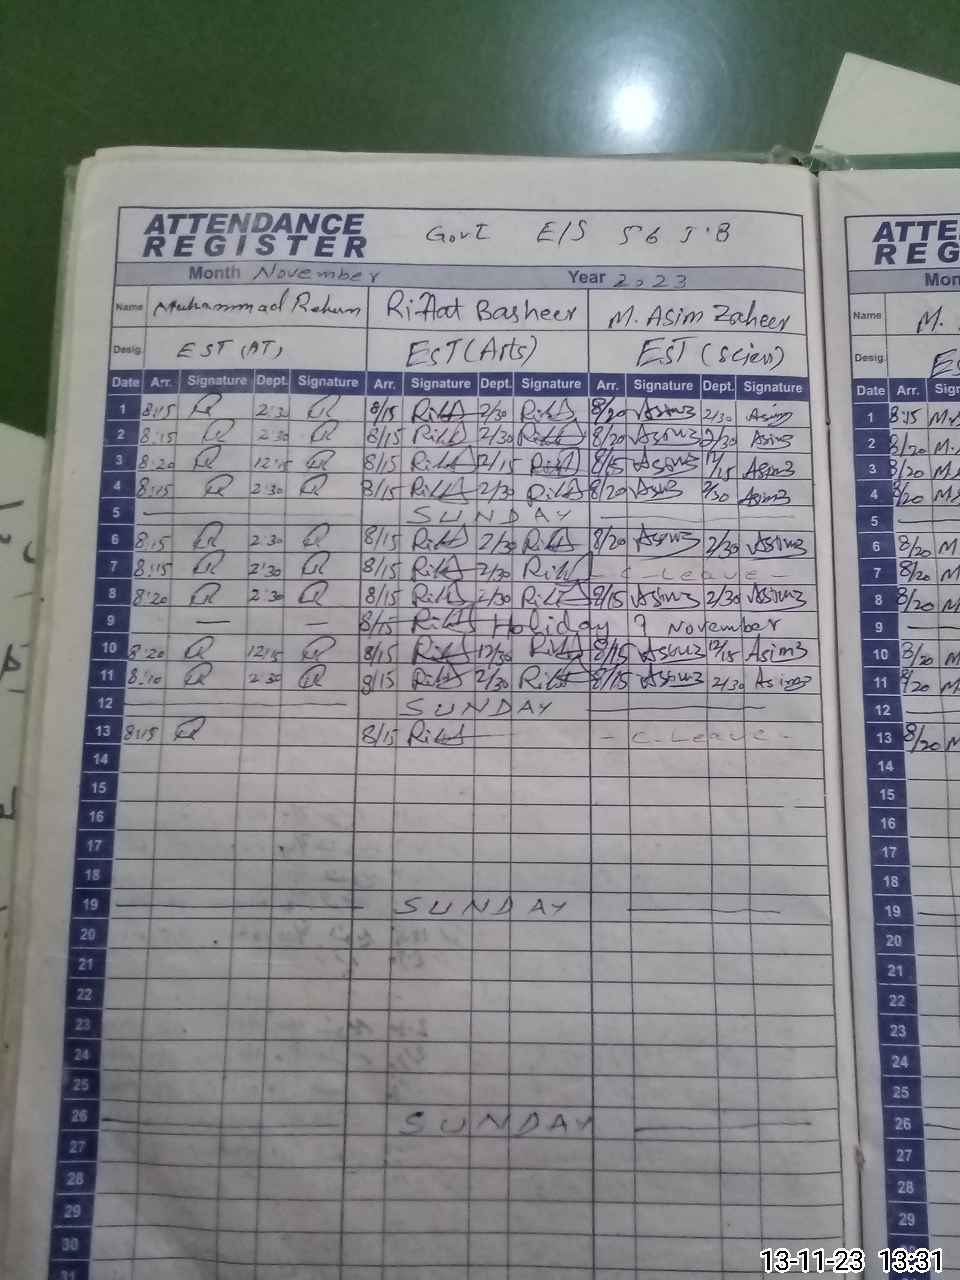 ATTENDANCE REGISTER Govt E/S 56 J'B
Month November Year 2023
Name Muhammad Rehan Riffat Basheer M. Asim Zaheer
Desig. EST (AT) EST (Arts) EST (Scien)
Date Arr. Signature Dept. Signature Arr. Signature Dept. Signature Arr. Signature Dept. Signature
1 8:15 2:30 8/15 Riffat 2/30 Riffat 8/20 Asim3 2/30 Asim3
2 8:15 2:30 8/15 Riffat 2/30 Riffat 8/20 Asim3 2/30 Asim3
3 8:20 12:15 8/15 Riffat 12/15 Riffat 8/15 Asim3 12/15 Asim3
4 8:15 2:30 8/15 Riffat 2/30 Riffat 8/20 Asim3 2/30 Asim3
5 SUNDAY
6 8:15 2:30 8/15 Riffat 2/30 Riffat 8/20 Asim3 2/30 Asim3
7 8:15 2:30 8/15 Riffat 2/30 Riffat - C-Leave -
8 8:20 2:30 8/15 Riffat 2/30 Riffat 8/15 Asim3 2/30 Asim3
9 — — 8/15 Riffat Holiday 9 November
10 8:20 12:15 8/15 Riffat 12/30 Riffat 8/15 Asim3 12/15 Asim3
11 8:10 2:30 8/15 Riffat 2/30 Riffat 8/15 Asim3 2/30 Asim3
12 SUNDAY
13 8:15 8/15 Riffat - C-Leave -
14
15
16
17
18
19 SUNDAY
20
21
22
23
24
25
26 SUNDAY
27
28
29
30
31
ATTE
REG
Mon
Name M.
Desig. ES
Date Arr. Sign
1 8:15 M.
2 8/20 M.
3 8/20 M
4 8/20 M
5
6 8/20 M
7 8/20 M
8 8/20 M
9
10 8/20 M
11 8/20 M
12
13 8/20 M
14
15
16
17
18
19
20
21
22
23
24
25
26
27
28
29
13-11-23 13:31